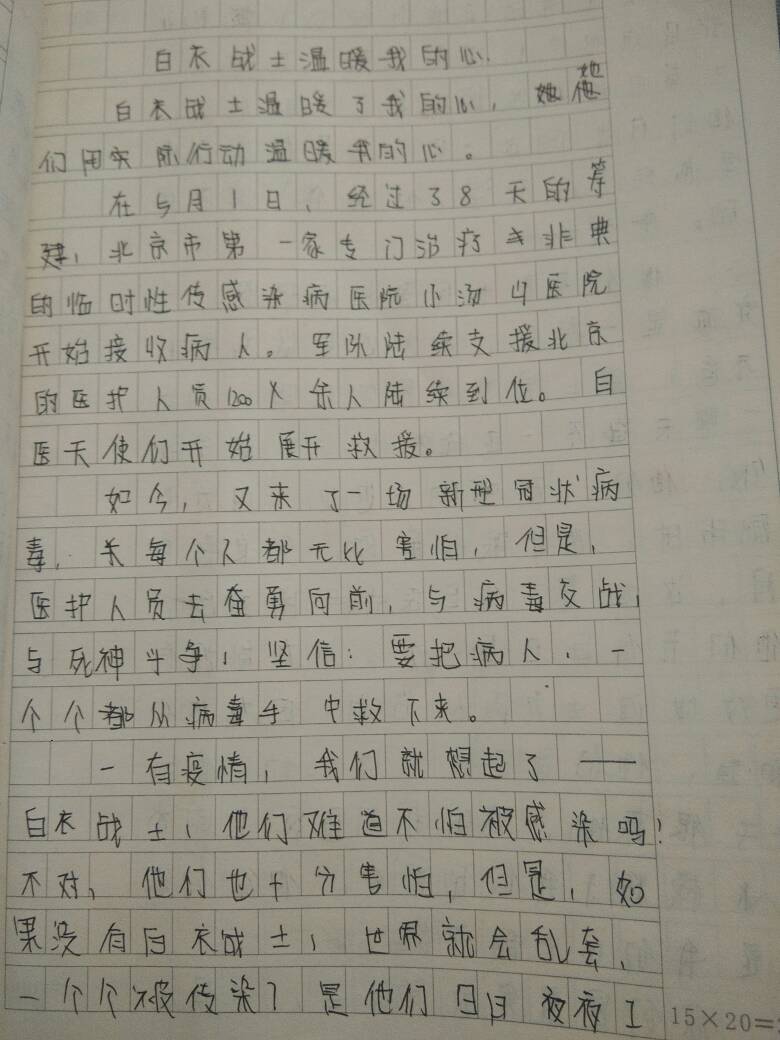 白衣战士温暖我的心
白衣战士温暖了我的心，她他她
们用实际行动温暖我的心。
在5月1日，经过38天的筹
建，北京市第一家专门治疗非典
的临时性传感染病医院小汤山医院
开始接收病人。军队陆续支援北京
的医护人员1200余人陆续到位。白
医天使们开始展开救援。
如今，又来了一场新型冠状病
毒，每个人都无比害怕，但是，
医护人员去奋勇向前，与病毒交战，
与死神斗争，坚信：要把病人，一
个个都从病毒手中救下来。
一有疫情，我们就想起了——
白衣战士，他们难道不怕被感染吗！
不对，他们也十分害怕，但是，如
果没有白衣战士，世界就会乱套，
一个个被传染了是他们日日夜夜工
15×20=